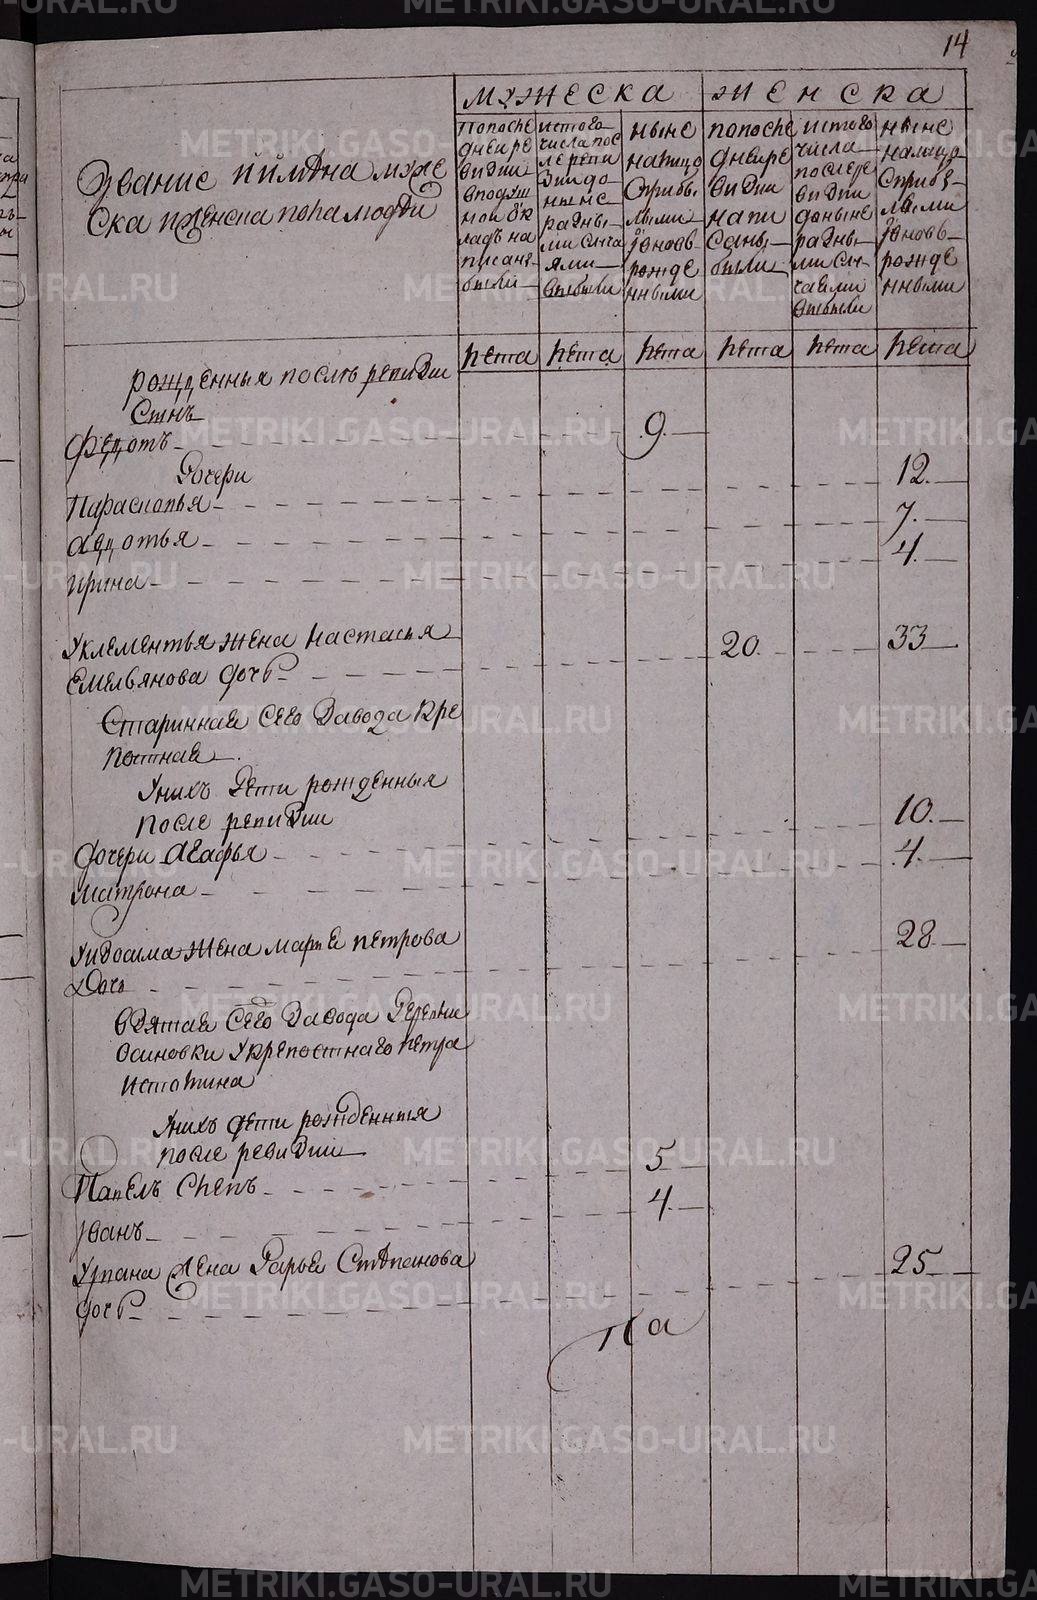 14
мужеска
женска
Звание и имена муже
ска и женска пола людей
попосле
дней ре
визии
вподуш
ной ок
ладъ на
писаны
были
истого
числа пос
ле реви
зии до
ныне
разны
ми случа
ями
выбыли
ныне
налицо
сприбы
лыми
и новь
рожде
нными
попосле
дней ре
визии
напи
саны
были
истого
числа
после ре
визии
доныне
разны
ми слу
чаями
выбыли
ныне
налицо
сприбы
лыми
и новь
рожде
нными
лета лета лета лета лета лета
рожденныя послѣ ревизии
Сынъ
Федотъ 9.
Дочери
Парасковья 12.
авдотья 7.
ирина 4.
У клементья жена настасья
Емельянова дочь 20. 33
Старинная Сего Завода кре
постная
У нихъ дети рожденныя
после ревизии
дочери агафья 10.
матрона 4.
У изосима жена марья петрова
дочь 28
взятая Сего Завода деревни
осиновки у крепостнаго петра
истомина
У нихъ дети рожденныя
после ревизии
Павелъ 5
Иванъ 4.
жена дарья Степанова
дочь 25
METRIKI.GASO-URAL.RU